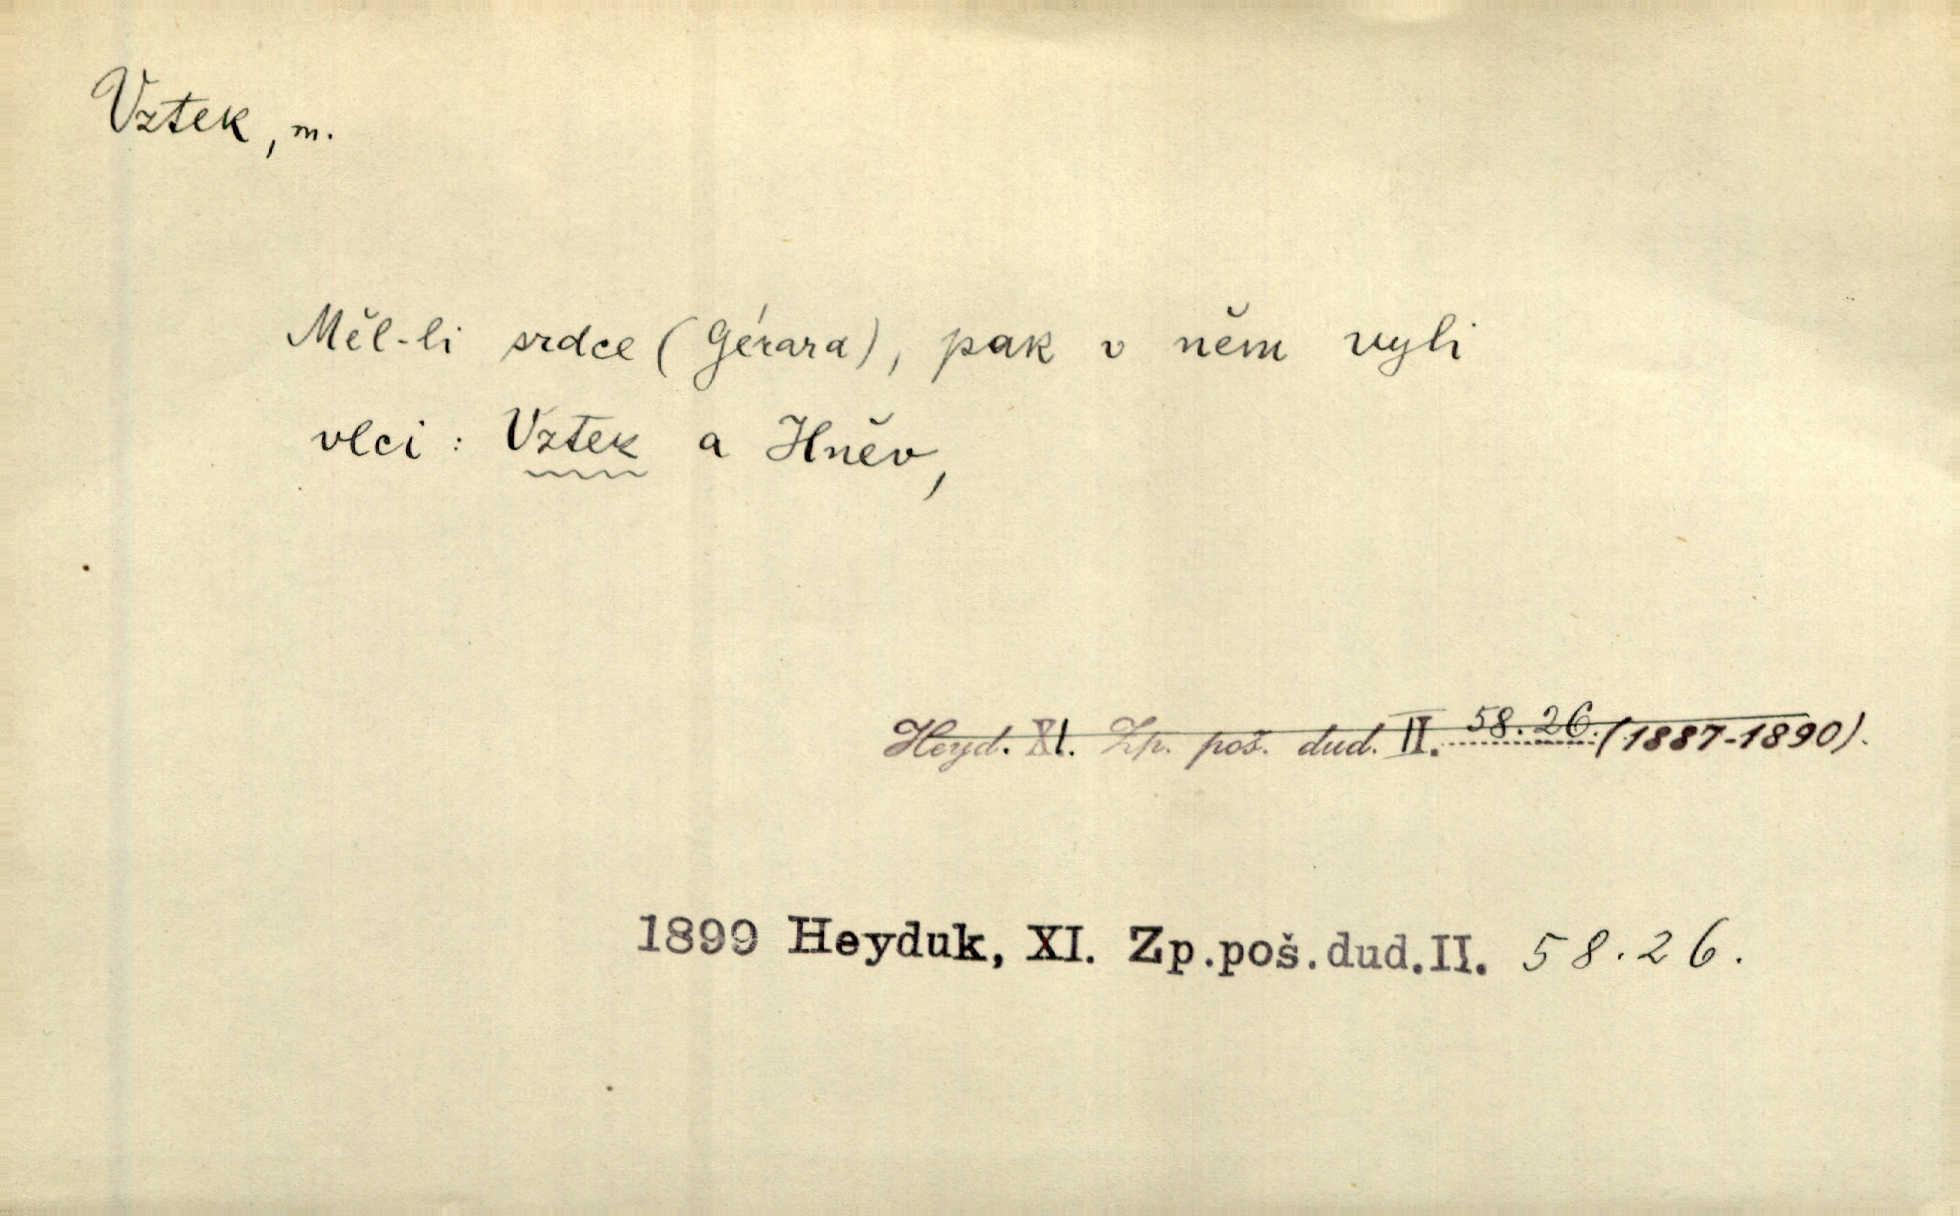 Vztek, m.
Měl-li srdce (Gérara), pak v něm vyli
vlci: Vztek a Hněv,
Heyd. XI. Zp. poš. dud. II. 58.26. (1887-1890).
1899 Heyduk, XI. Zp.poš.dud.II. 58.26.